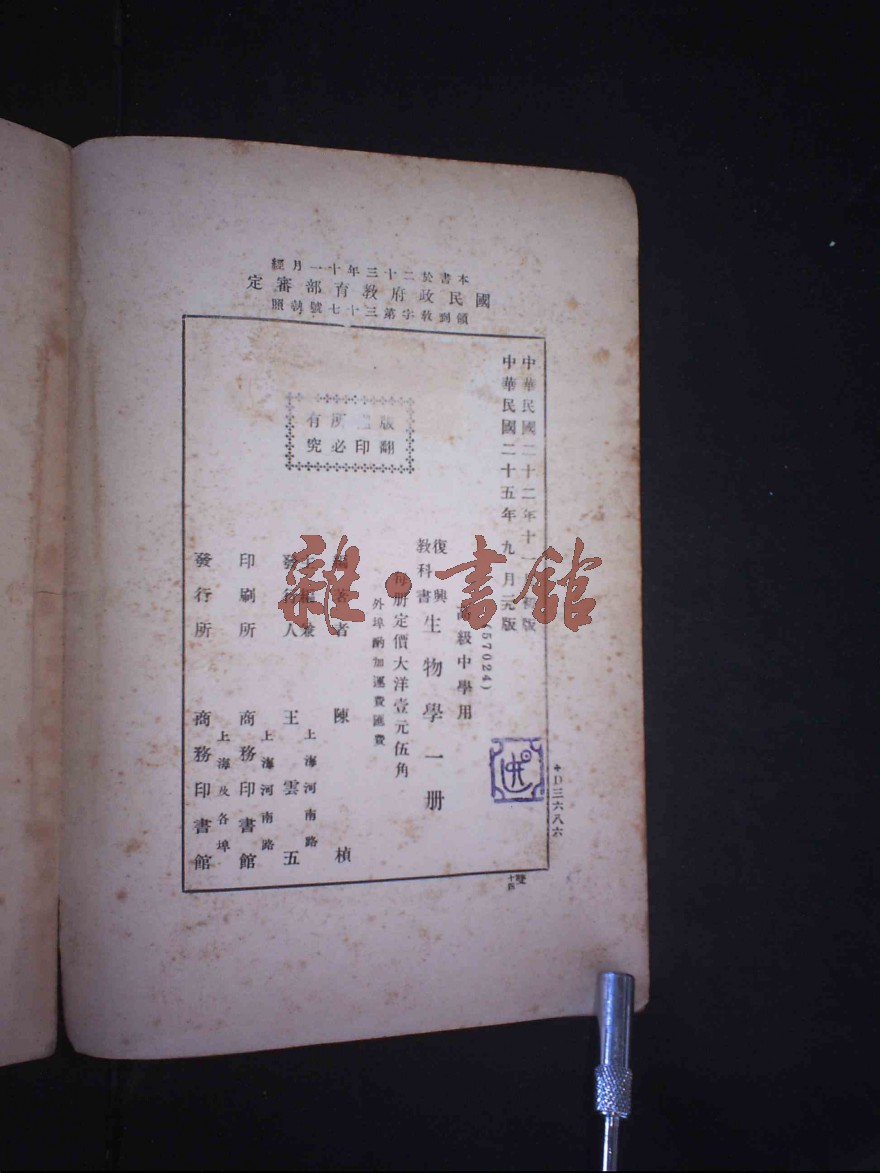 本書於二十三年十一月經
國民政府教育部審定
領到教字第三十七號執照
中華民國二十二年十一月初版
中華民國二十五年九月
(57024)
高級中學用
復興
教科書
生物學一册
每册定價大洋壹元伍角
外埠酌加運費匯費
版 所有
翻印必究
編著者 陳楨
發行人 王雲五
上海河南路
印刷所 商務印書館
上海河南路
發行所 商務印書館
上海及各埠
D三六八六
雜·書館